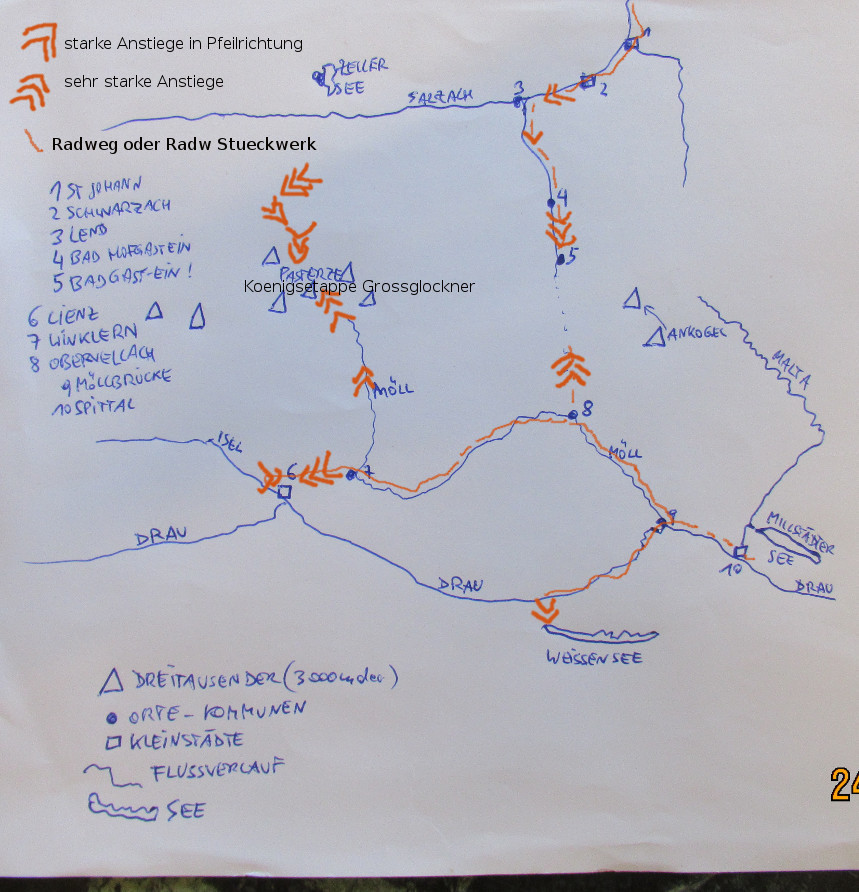 starke Anstiege in Pfeilrichtung
sehr starke Anstiege
Radweg oder Radw Stueckwerk
ZELLER
SEE
SALZACH
1
2
3
4
5
1 ST JOHANN
2 SCHWARZACH
3 LEND
4 BAD HOFGASTEIN
5 BADGAST-EIN!
6 LIENZ
7 WINKLERN
8 OBERVELLACH
9 MÖLLBRÜCKE
10 SPITTAL
PASTERZE
Koenigsetappe Grossglockner
ANKOGEL
MALTA
MÖLL
8
ISEL
6
7
MÖLL
9
MILLSTÄDTER
SEE
10
DRAU
DRAU
DRAU
WEISSENSEE
DREITAUSENDER (3000
ORTE - KOMMUNEN
KLEINSTÄDTE
FLUSSVERLAUF
SEE
24